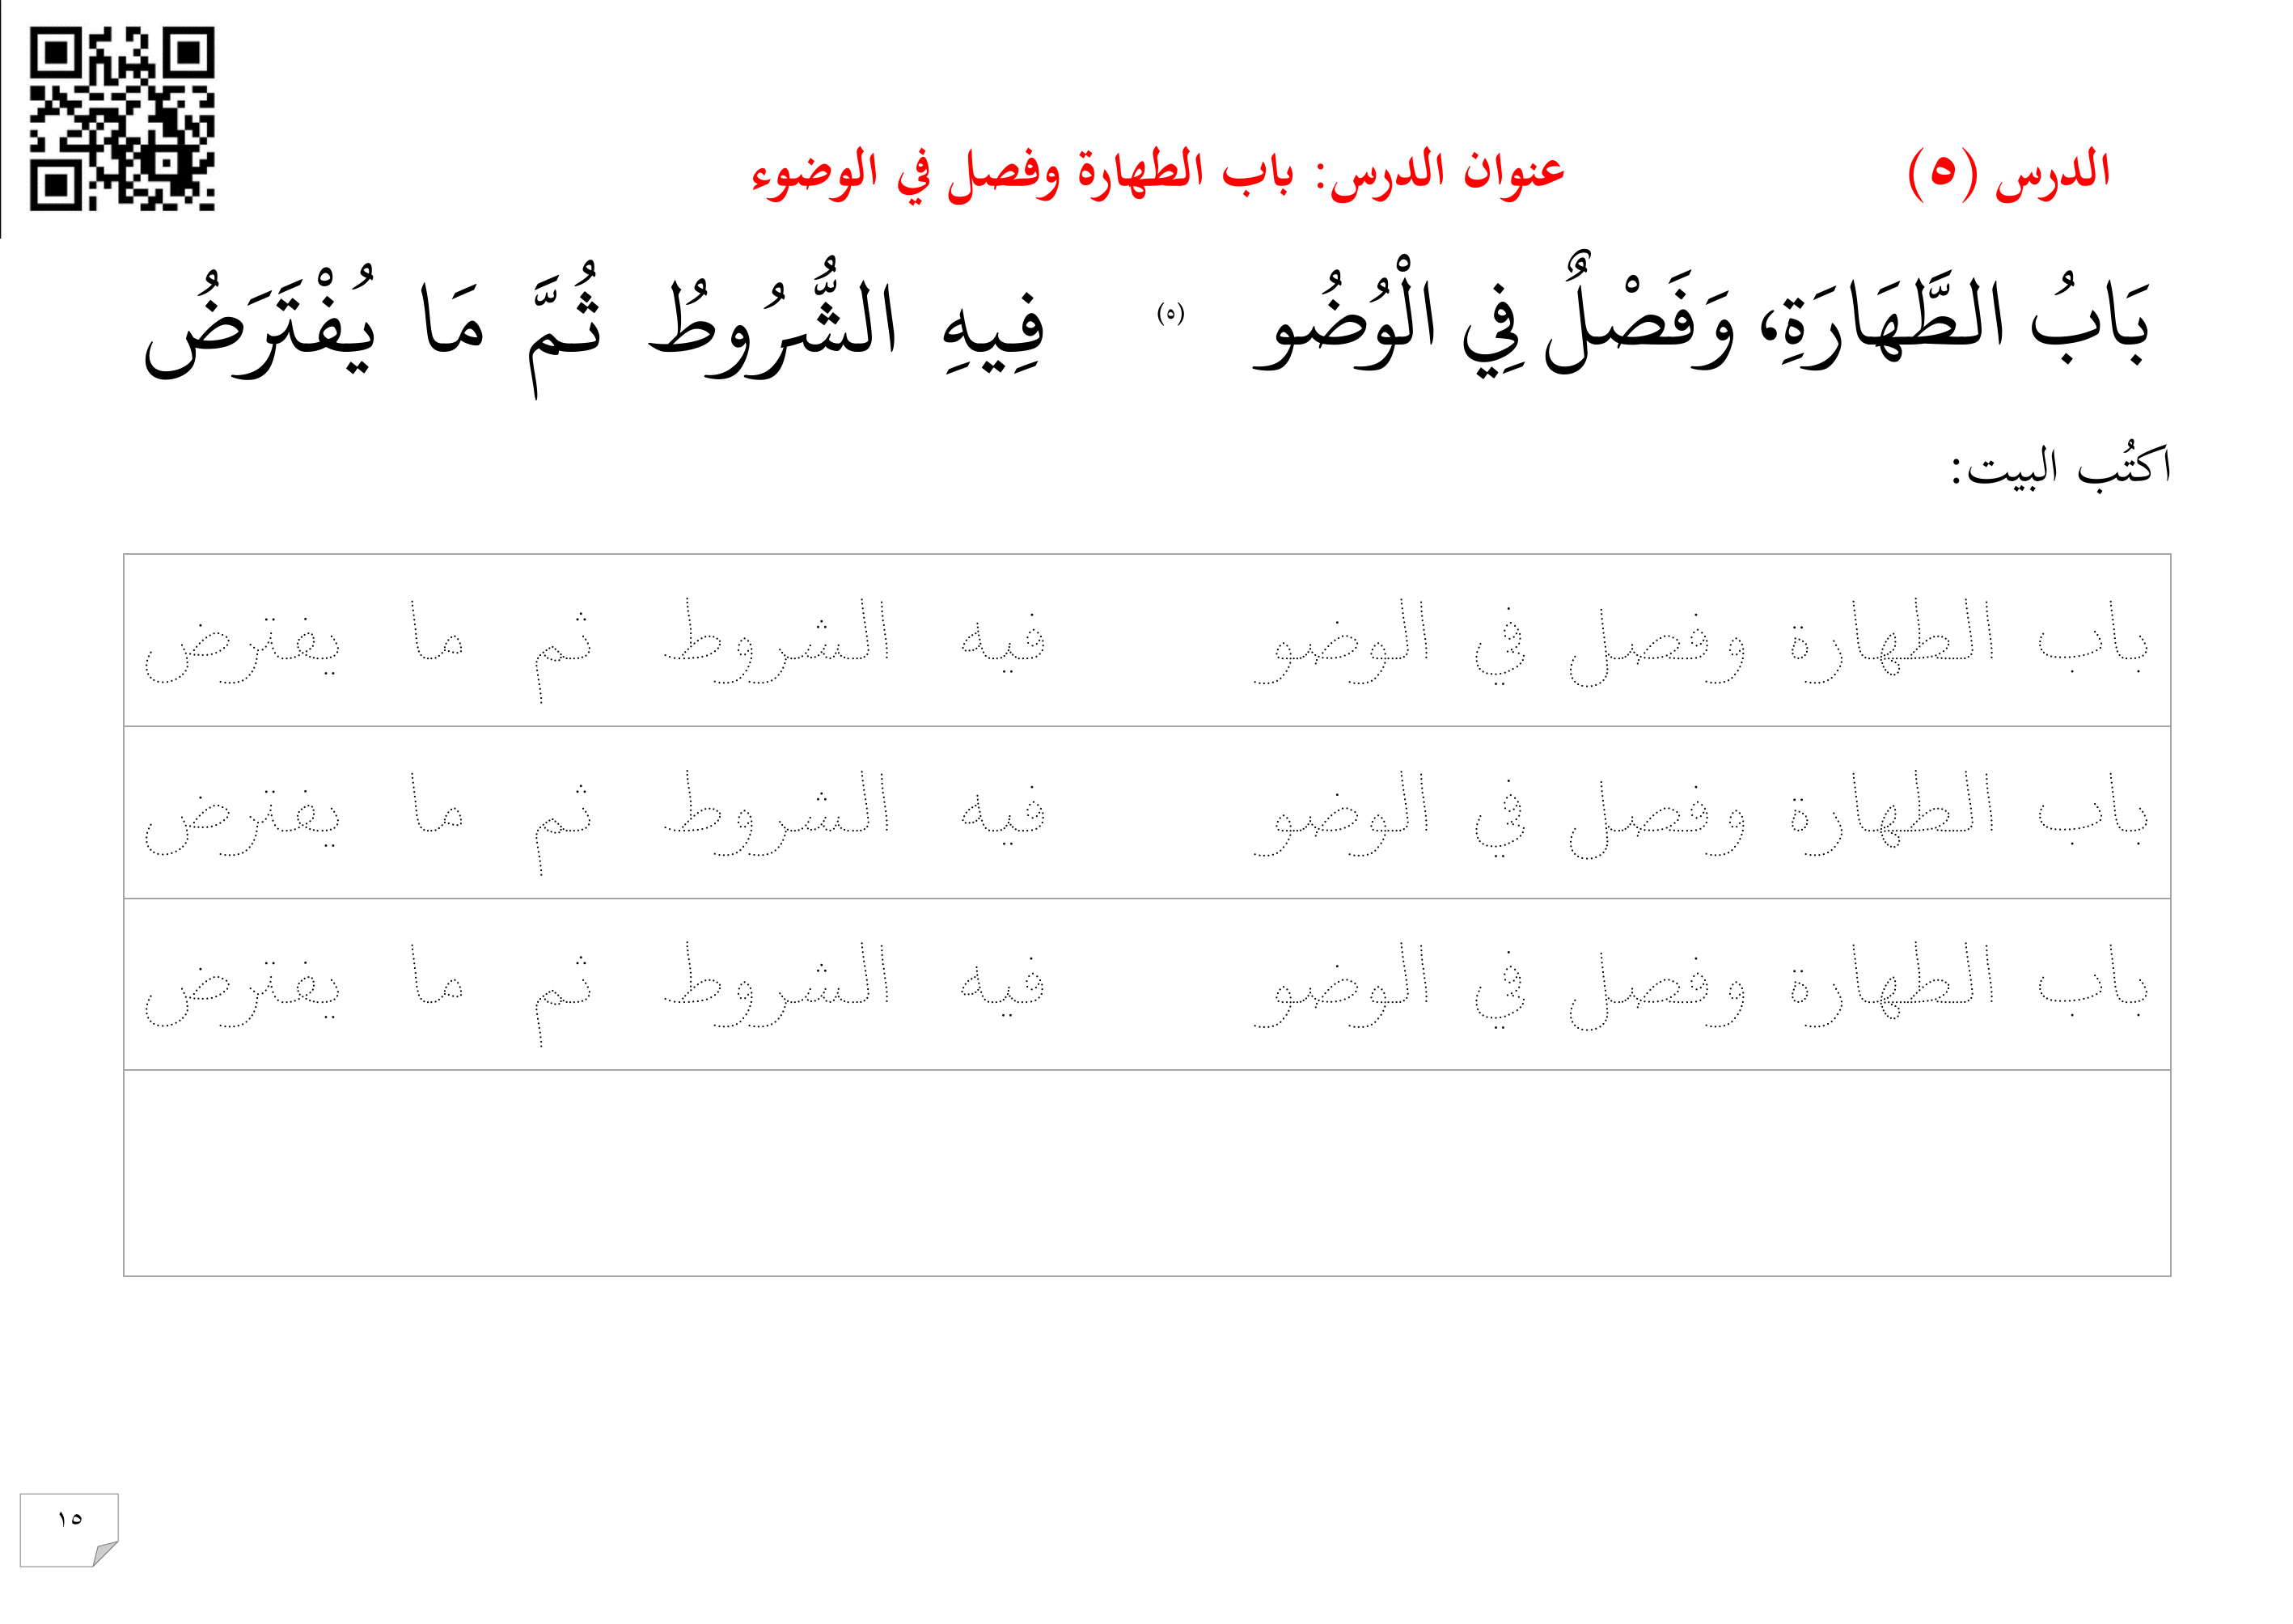 الدرس (٥) عنوان الدرس: باب الطهارة وفصل في الوضوء
بَابُ الطَّهَارَةِ، وَفَصْلٌ فِي الْوُضُو (٥) فِيهِ الشُّرُوطُ ثُمَّ مَا يُفْتَرَضُ
اكتُب البيت:
باب الطهارة وفصل في الوضو فيه الشروط ثم ما يفترض
باب الطهارة وفصل في الوضو فيه الشروط ثم ما يفترض
باب الطهارة وفصل في الوضو فيه الشروط ثم ما يفترض
١٥